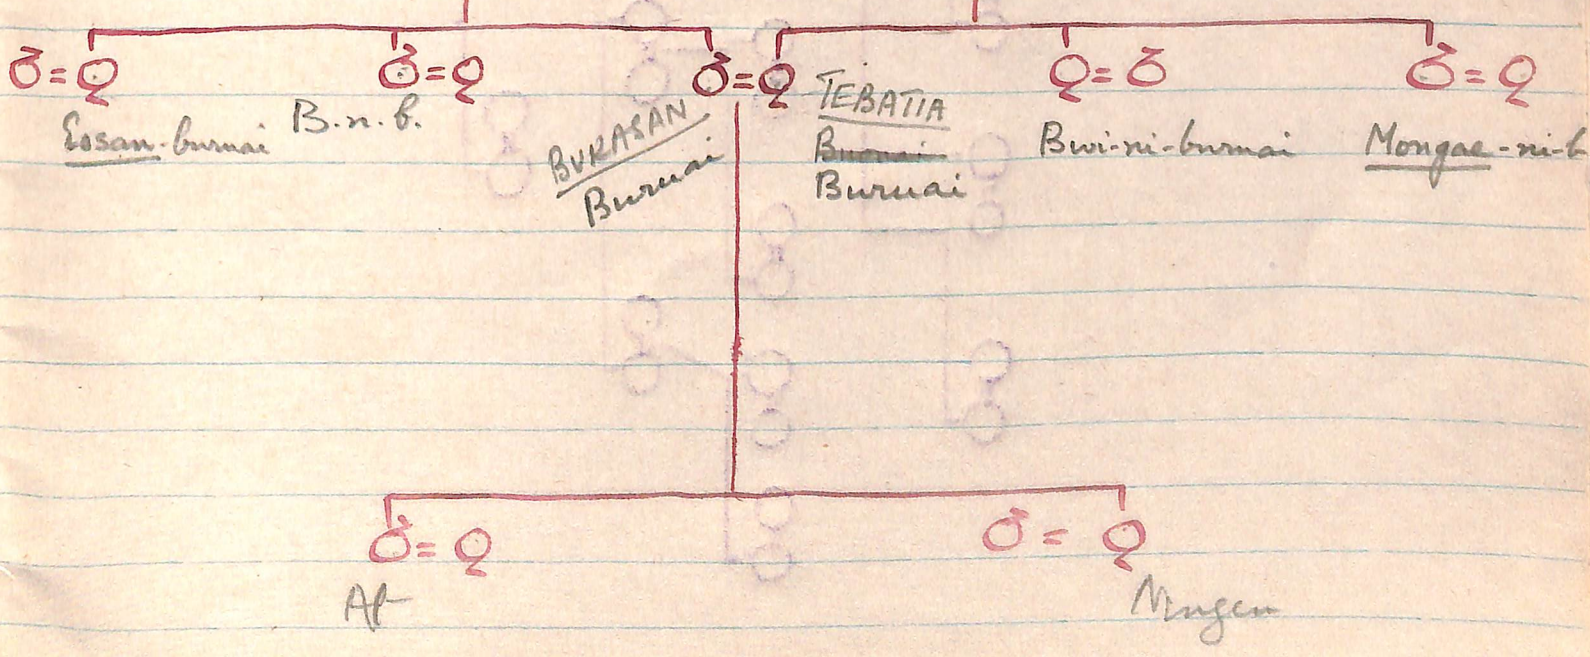 ♂=♀ ♂=♀ ♂=♀ ♀=♂ ♂=♀
Eosan-buruai
B.n.b.
BURASAN
Buruai
TEBATIA
Buruai
Buruai
Bwi-ni-buruai
Mongae-ni-b
♂=♀ ♂=♀